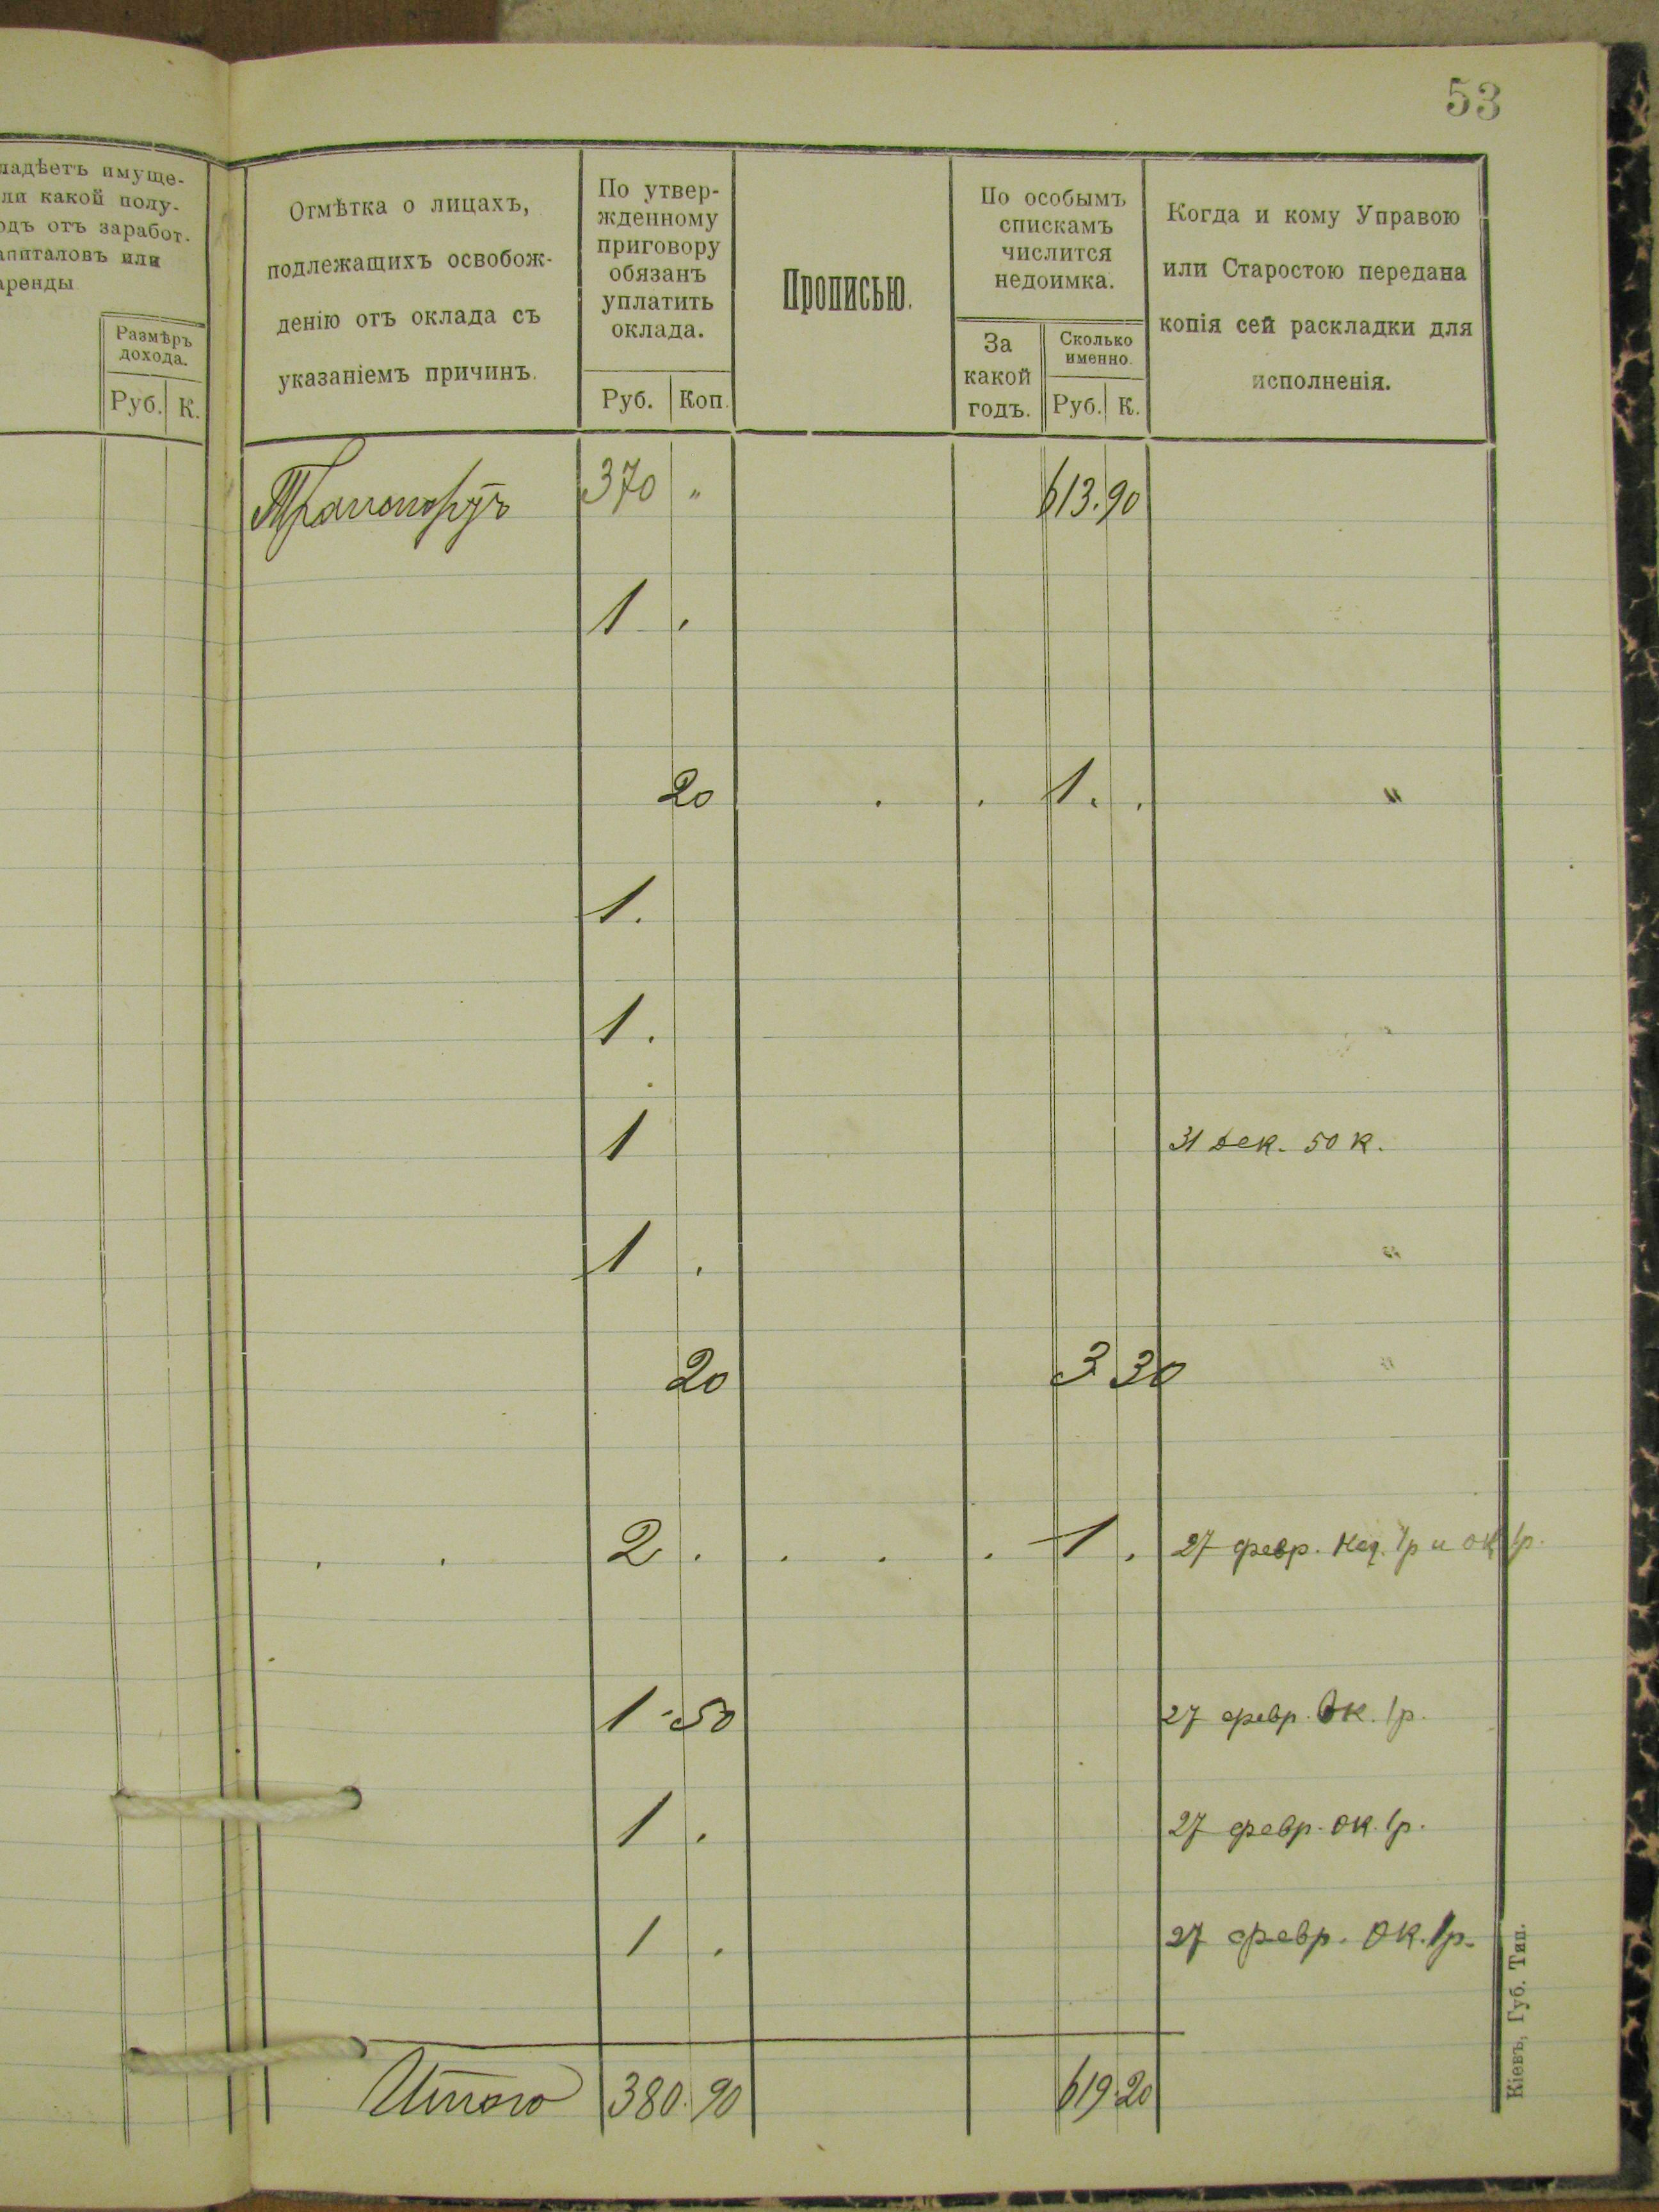 53
ладѣетъ имуще-
ли какой полу-
одъ отъ заработ.
апиталовъ или
аренды
Размѣръ
дохода.
Руб. К.
Отмѣтка о лицахъ,
подлежащихъ освобож-
денію отъ оклада съ
указаніемъ причинъ.
По утвер-
жденному
приговору
обязанъ
уплатить
оклада.
Руб. Коп.
Прописью.
По особымъ
спискамъ
числится
недоимка.
За
какой
годъ.
Сколько
именно.
Руб. К.
Когда и кому Управою
или Старостою передана
копія сей раскладки для
исполненія.
Транспортъ 370 „ 613.90
1 .
20 . . 1. . „
1.
1.
1 31 дек. 50 к.
1 . „
20 3 30 „
. . 2 . . . . 1 . 27 февр. нед. 1р и ок 1р.
1-50 27 февр. Ок. 1р.
1 . 27 февр. ок. 1р.
1 . 27 февр. ок. 1р.
Итого 380.90 619.20
Кіевъ, Губ. Тип.